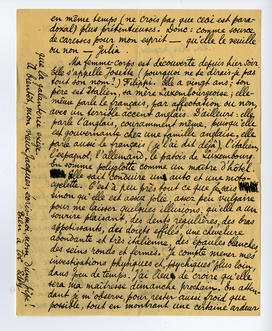 en même temps (ne crois pas que ceci est para-
doxal) plus prétentieuses. Donc : comme source
de caresses pour mon esprit — qu'elle le veuille
ou non — Julia.
Ma femme-corps est découverte depuis hier soir.
Elle s'appelle Josette (pourquoi ne te dirais-je pas
tout son nom ?) Filippi. Elle a vingt ans ; son
père est Italien, sa mère Luxembourgeoise ; elle
même parle le français, par affectation ou non,
avec un terrible accent anglais. D'ailleurs : elle
parle l'anglais, couramment même, puisqu'elle
est gouvernante chez une famille anglaise, elle
parle aussi le français (je l'ai dit déjà), l'italien,
l'espagnol, l'allemand, le patois de Luxembourg.
En somme polyglotte comme un maître d'hôtel.
Elle sait conduire un auto et une moto-
cyclette. C'est à peu près tout ce que je sais
sinon qu'elle est assez jolie, assez peu vulgaire
pour me laisser quelques illusions, qu'elle a un
sourire plaisant, des dents régulières, des bras
appétissants, des doigts effilés, une chevelure
abondante et très italienne, des épaules blanches
des seins ronds et fermes. Je compte mener mes
investigations physiques et psychiques plus loin
dans peu de temps. J'ai lieu de croire qu'elle
sera ma maîtresse dimanche prochain. En atten-
dant je m'observe pour rester aussi froid que
possible, tout en montrant une certaine ardeur
que la
À bientôt, mon vieux Jacques,